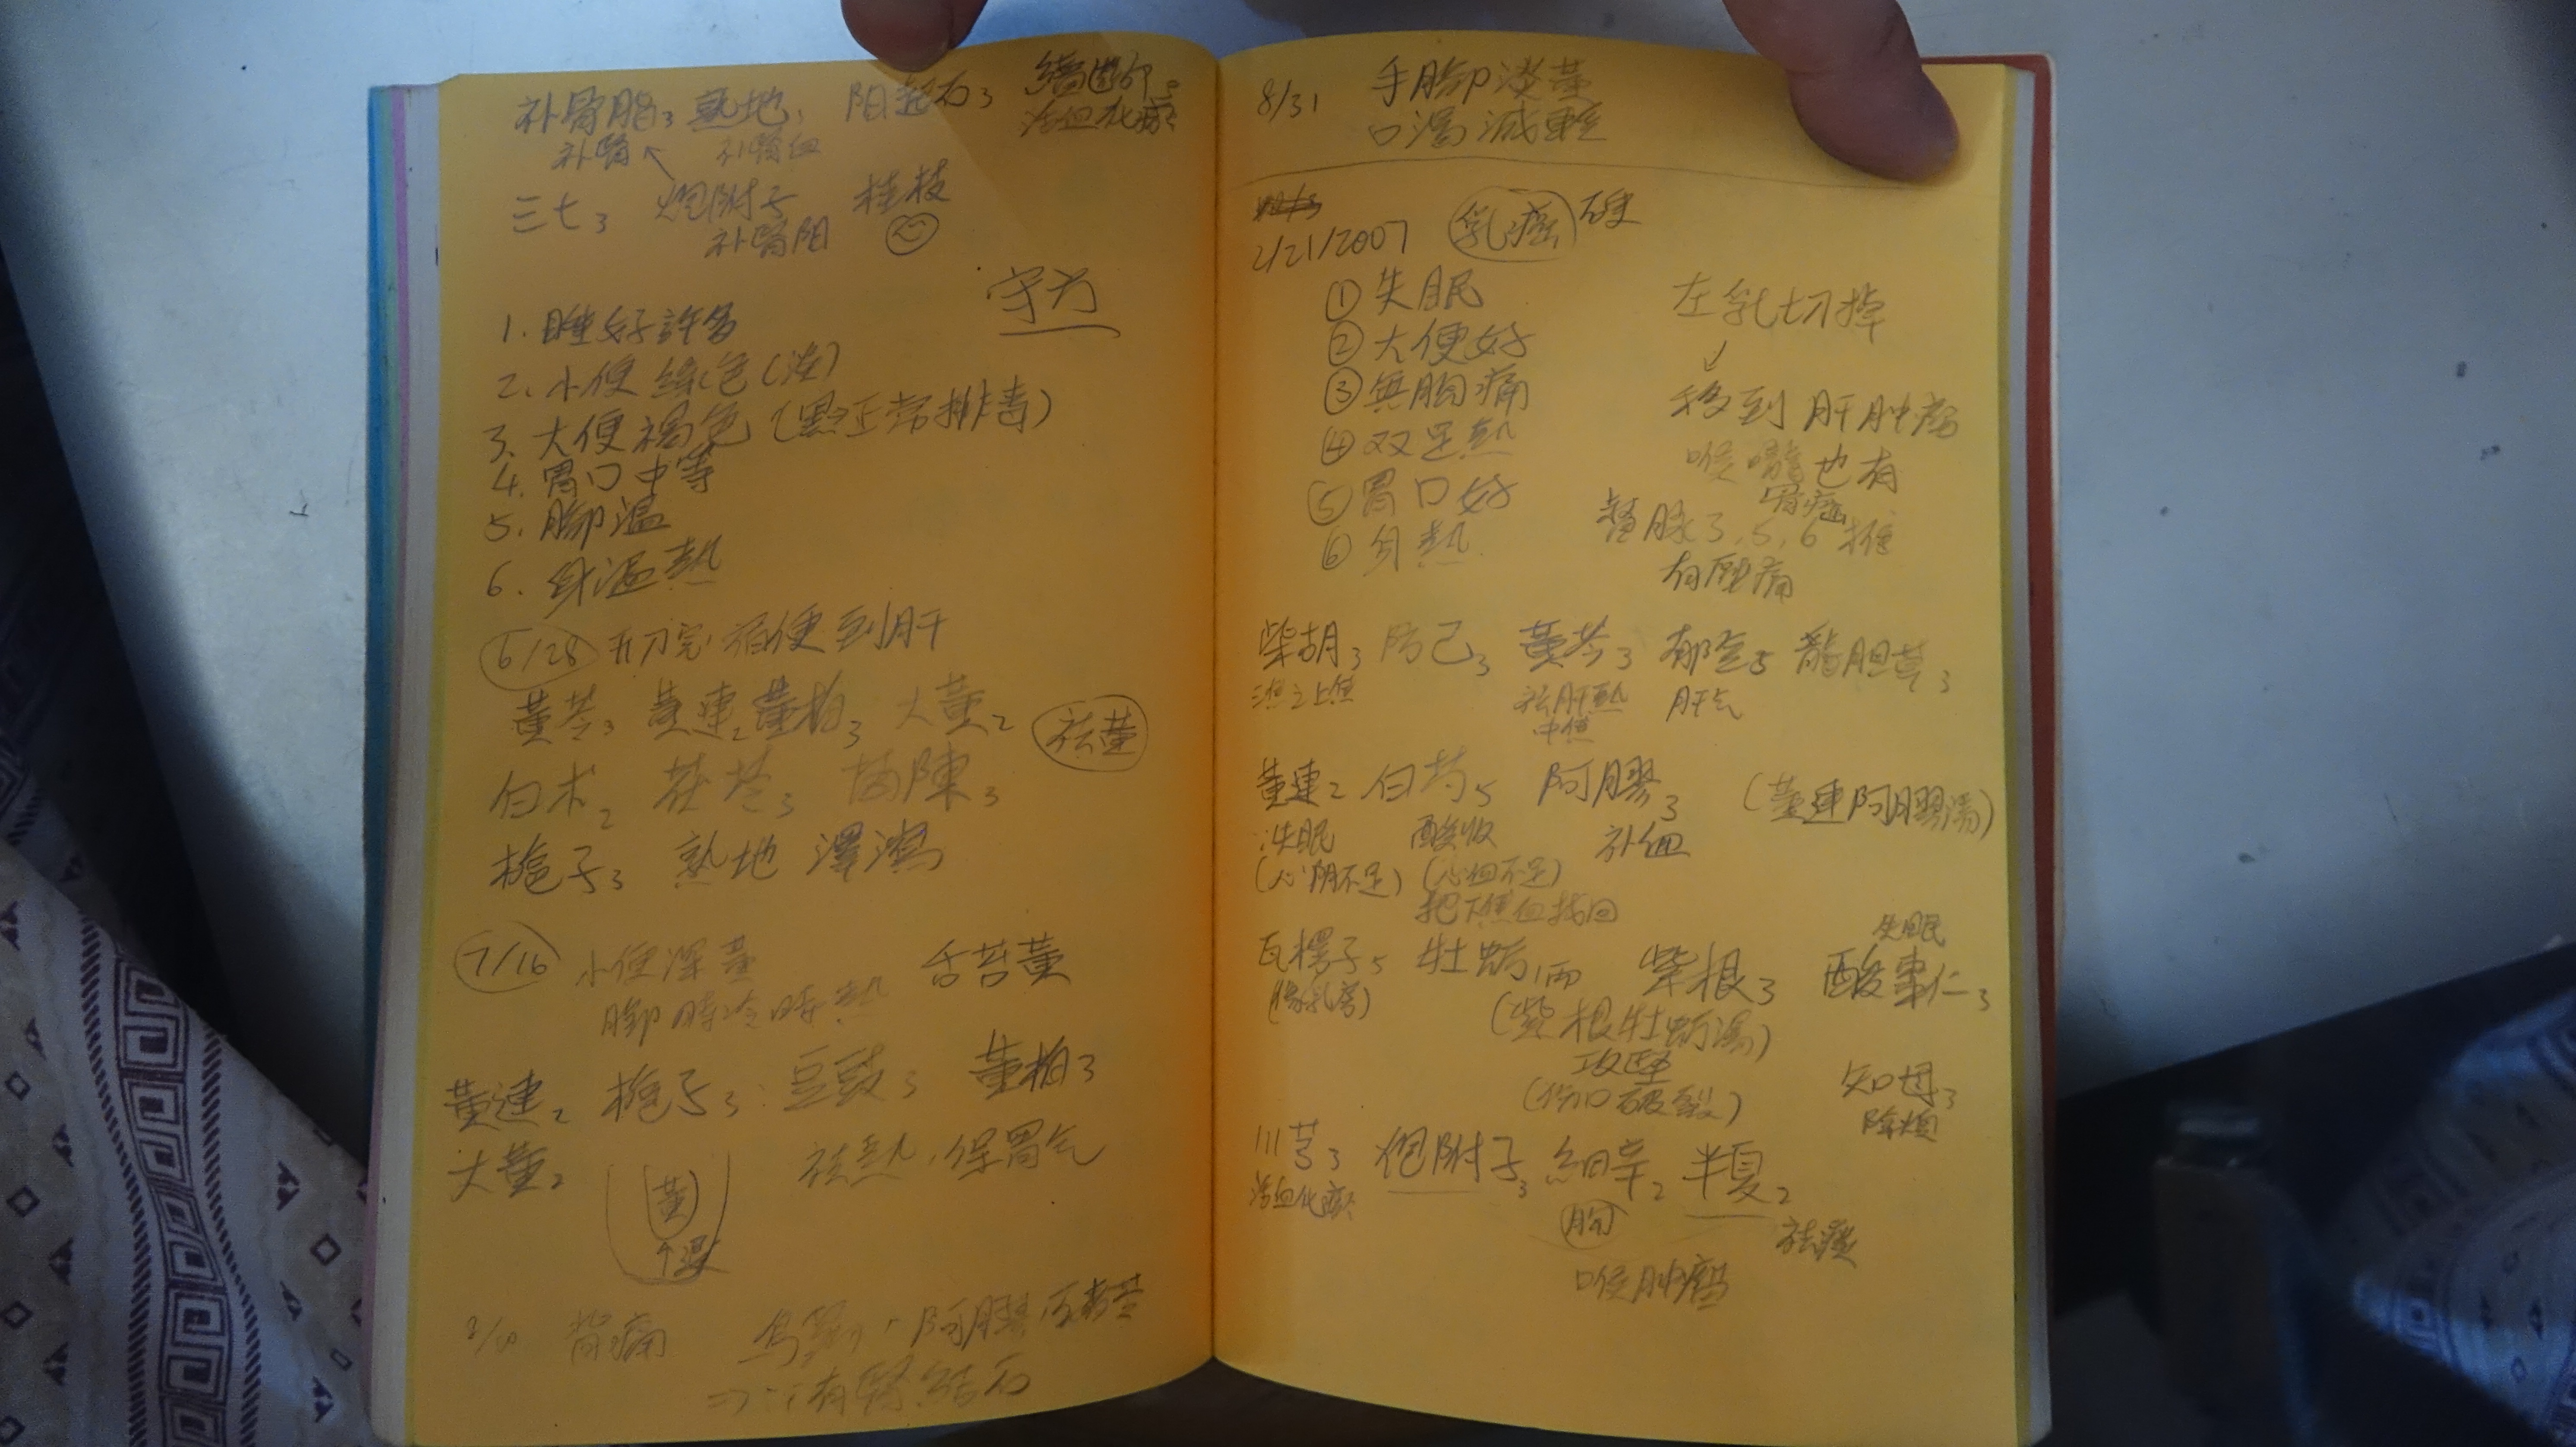 补骨脂3 熟地3 陽起石3
补腎 补腎血 活血化瘀
三七3 炮附子 桂枝
补腎阳
守方
1. 睡好許多
2. 小便 綠色(淡)
3. 大便褐色(黑正常排毒)
4. 胃口中等
5. 腳溫
6. 身溫熱
6/28 开刀完 宿便到肝
黃芩3 黃連2 黃柏3 大黃2
祛黃
白术2 茯苓3 茵陳3
梔子3 熟地 澤瀉
7/16 小便深黃 舌苔黃
腳時冷時熱
黃連2 梔子3 豆豉3 黃柏3
大黃2 祛熱,保胃气
黃
↑濕
背痛 阿膠
有腎結石
8/31 手腳淡黃
口渴減輕
2/21/2007 乳癌 硬
① 失眠
② 大便好
③ 無胸痛
④ 双足熱
⑤ 胃口好
⑥ 身熱
左乳切掉
移到肝肿瘤
喉嚨也有
骨癌
督脉3,5,6椎
有壓痛
柴胡3 防己3 黃芩3 郁金5 龍胆草3
三焦之上焦 祛肝熱 肝气
中焦
黃連2 白芍5 阿膠3 (黃連阿膠湯)
失眠 酸收 补血
(心陰不足) (心血不足)
把下焦血找回
瓦楞子5 牡蛎1両 紫根3 酸棗仁3
失眠
(像乳房) (紫根牡蛎湯)
攻堅
(伤口破裂)
知母3
除煩
川芎3 炮附子3 細辛2 半夏2
活血化瘀 胸 祛痰
喉肿瘤